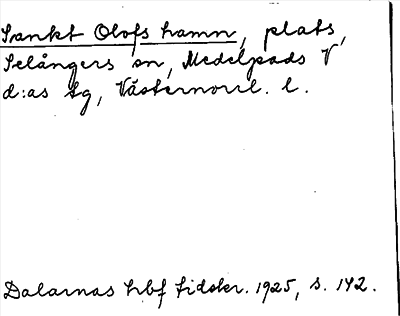 Sankt Olofs hamn, plats,
Selångers sn, Medelpads V
d:as tg, Västernorrl. l.
Dalarnas hbf tidskr. 1925, s. 142.